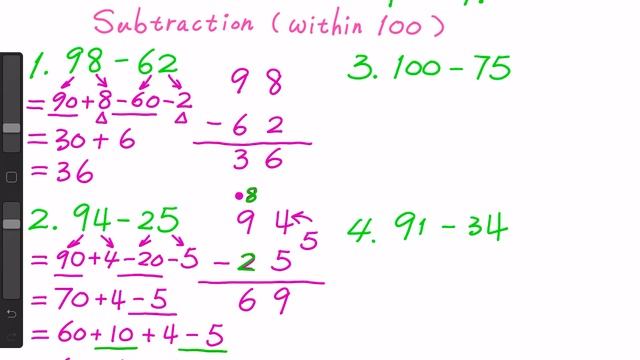 Subtraction (within 100)
1. 98 - 62
= 90 + 8 - 60 - 2
= 30 + 6
= 36
9 8
- 6 2
3 6
2. 94 - 25
= 90 + 4 - 20 - 5
= 70 + 4 - 5
= 60 + 10 + 4 - 5
8
9 4
5
- 2 5
6 9
3. 100 - 75
4. 91 - 34